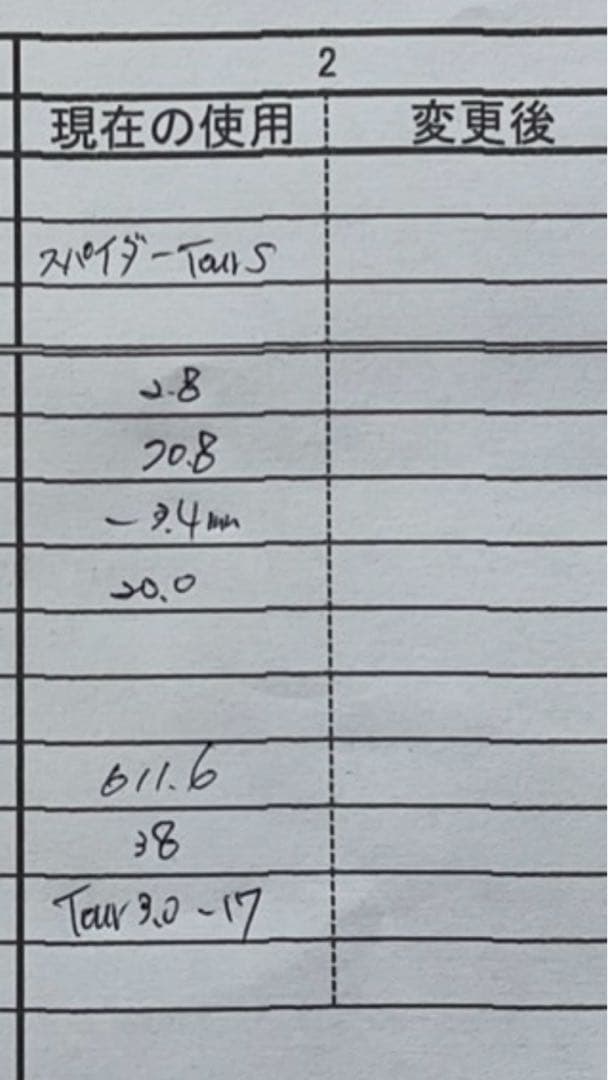 2
現在の使用 変更後
スパイダーTour S
2.8
20.8
-3.4mm
20.0
611.6
38
Tour 3.0-17